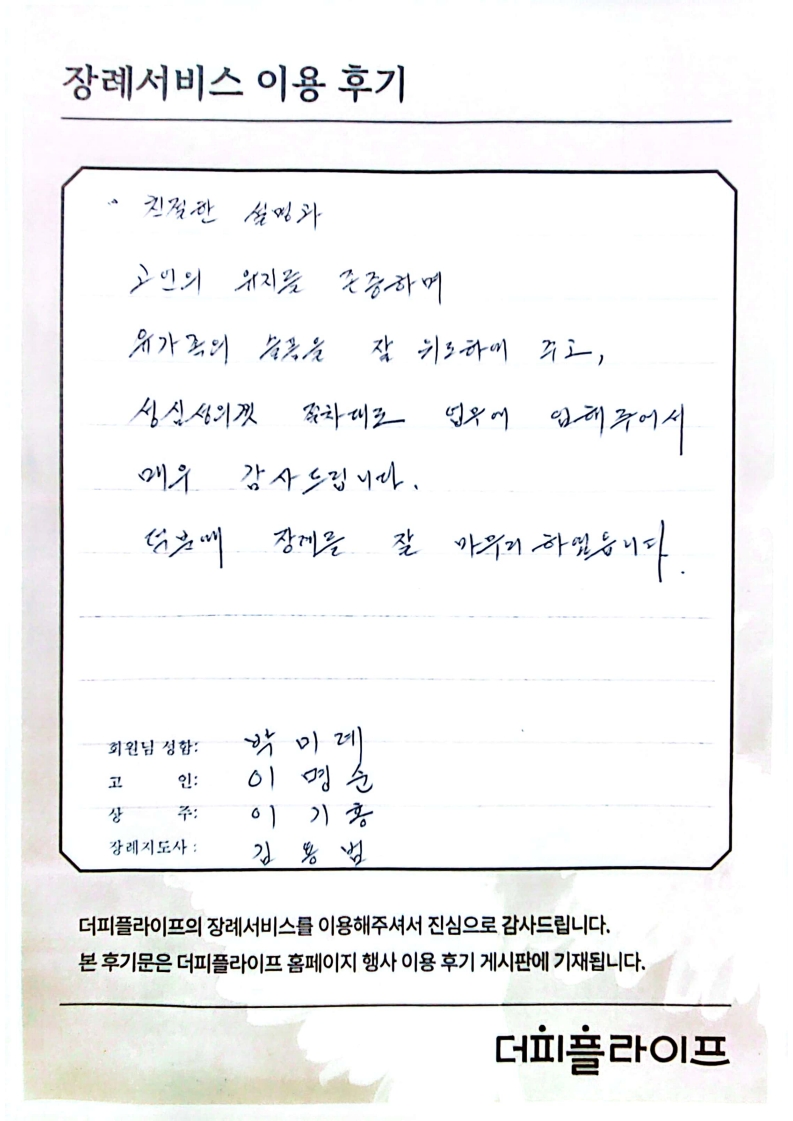 장례서비스 이용 후기
" 친절한 설명과
고인의 유지를 존중하며
유가족의 슬픔을 잘 위로하여 주고,
성심성의껏 절차대로 업무에 임해주어서
매우 감사드립니다.
덕분에 장례를 잘 마무리 하였습니다.
회원님 성함: 박미례
고 인: 이명순
상 주: 이기홍
장례지도사: 김용범
더피플라이프의 장례서비스를 이용해주셔서 진심으로 감사드립니다.
본 후기문은 더피플라이프 홈페이지 행사 이용 후기 게시판에 기재됩니다.
더피플라이프